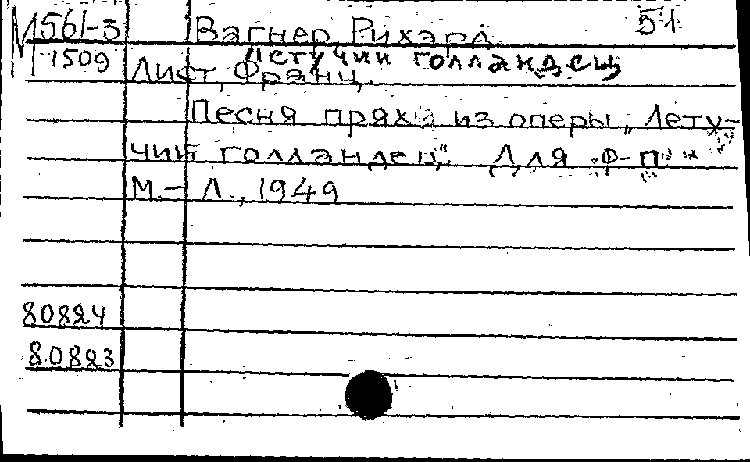 М561-3 Вагнер Рихард 51
1509 Летучий голландец
Лист, Франц.
Песня прях из оперы „Лету-
чий голландец". Для ф-п
М.-Л., 1949
80824
80823